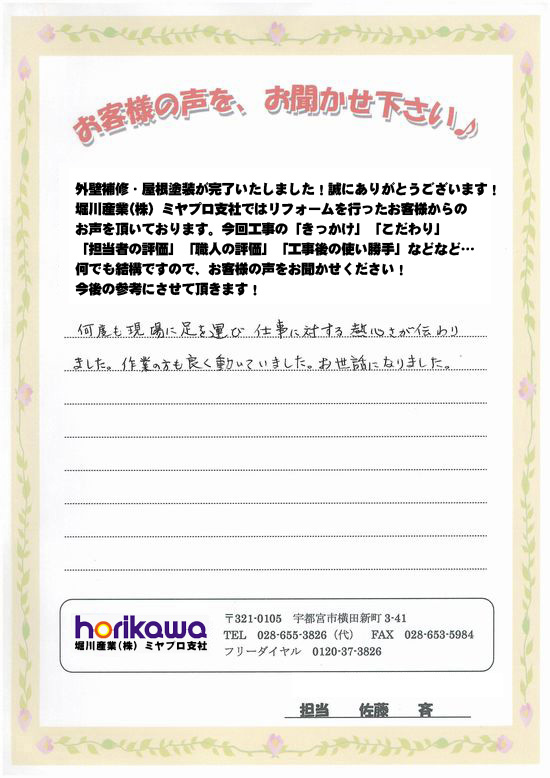 お客様の声を、お聞かせ下さい♪
外壁補修・屋根塗装が完了いたしました！誠にありがとうございます！
堀川産業(株) ミヤプロ支社ではリフォームを行ったお客様からの
お声を頂いております。今回工事の「きっかけ」「こだわり」
「担当者の評価」「職人の評価」「工事後の使い勝手」などなど…
何でも結構ですので、お客様の声をお聞かせください！
今後の参考にさせて頂きます！
何度も現場に足を運び 仕事に対する熱心さが伝わり
ました。作業の方も良く動いていました。お世話になりました。
horikawa
堀川産業(株) ミヤプロ支社
〒321-0105 宇都宮市横田新町3-41
TEL 028-655-3826（代） FAX 028-653-5984
フリーダイヤル 0120-37-3826
担当 佐藤 斉